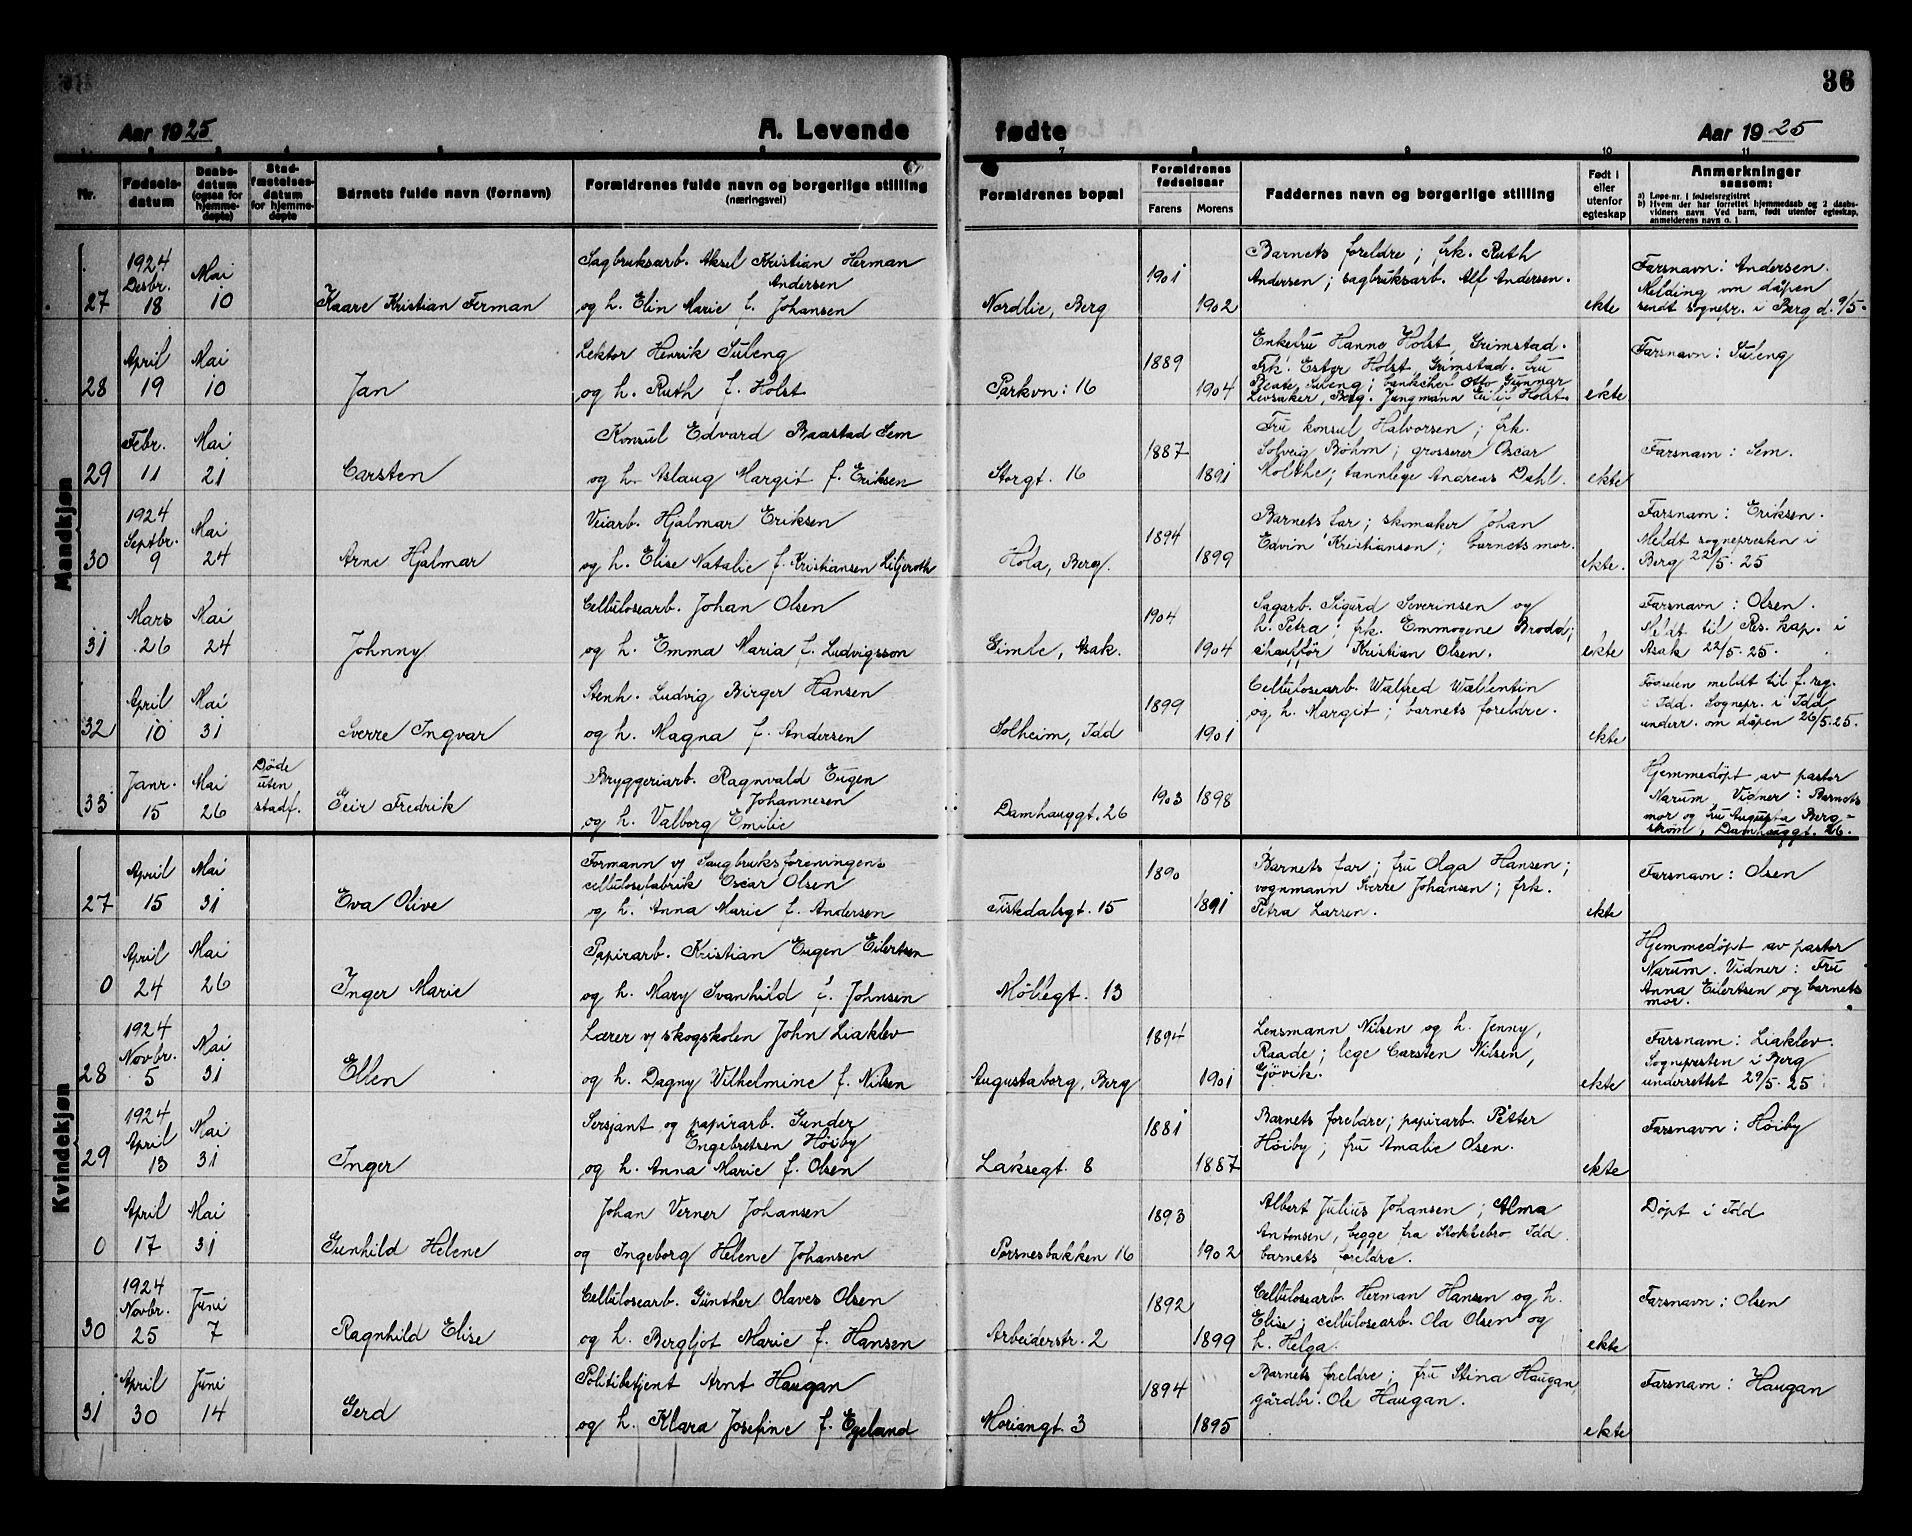 36
Aar 1925 A. Levende
fødte Aar 1925
1 2 3 4 5 6 7 8 9 10 11
Nr.
Fødsels-
datum
Daabs-
datum
(ogsaa for
hjemme-
døpte)
Stad-
fæstelses-
datum
for hjemme-
døpte
Barnets fulde navn (fornavn)
Forældrenes fulde navn og borgerlige stilling
(næringsvei)
Forældrenes bopæl
Forældrenes
fødselsaar
Farens Morens
Faddernes navn og borgerlige stilling
Født i
eller
utenfor
egteskap
Anmerkninger
saasom:
a) Løpe-nr. i fødselsregistret
b) Hvem der har forrettet hjemmedaab og 2 daabs-
vidners navn Ved barn, født utenfor egteskap,
anmelderens navn o. l
Mandkjøn
27
1924
Desbr.
18
Mai
10
Kaare Kristian Ferman
Sagbruksarb. Aksel Kristian Herman
Andersen
og h. Elin Marie f. Johansen
Nordlie, Berg
1901
1902
Barnets foreldre; frk. Ruth
Andersen; sagbruksarb. Alf Andersen.
ekte
Farsnavn: Andersen.
Melding om dåpen
sendt sognepr. i Berg d. 9/5.
28
April
19
Mai
10
Jan
Lektor Henrik Suleng
og h. Ruth f. Holst
Parkvn: 16
1889
1904
Enkefru Hanne Holst, Grimstad.
Frk. Ester Holst, Grimstad. fru
Beate Suleng; bankchef Otto Gunnar
Levsaker, Berg. Jungmann Eilif Holst.
ekte
Farsnavn: Suleng
29
Febr.
11
Mai
21
Carsten
Konsul Edvard Baastad Sem
og h. Aslaug Margit f. Eriksen
Storgt. 16
1887
1891
Fru konsul Halvorsen; frk.
Solveig Bøhm; grosserer Oscar
Molthe; tannlege Andreas Dahl.
ekte
Farsnavn: Sem.
30
1924
Septbr.
9
Mai
24
Arne Hjalmar
Veiarb. Hjalmar Eriksen
og h. Elise Natalie f. Kristiansen Liljeroth
Hola, Berg.
1894
1899
Barnets far; skomaker Johan
Edvin Kristiansen; barnets mor.
ekte.
Farsnavn: Eriksen.
Meldt sognepresten i
Berg 22/5. 25
31
Mars
26
Mai
24
Johnny
Cellulosearb. Johan Olsen
og h. Emma Maria f. Ludvigsson
Gimle, Asak.
1904
1904
Sagarb. Sigurd Severinsen og
h. Petra; frk. Emmogene Brodd;
chauffør Kristian Olsen.
ekte
Farsnavn: Olsen.
Meldt til Res. kap. i
Asak 22/5. 25.
32
April
10
Mai
31
Sverre Ingvar
Stenh. Ludvig Birger Hansen
og h. Magna f. Andersen
Solheim, Idd
1899
1901
Cellulosearb. Walfred Wallentin
og h. Margit; barnets foreldre.
ekte
Fødselen meldt til f. reg.
i Idd. Sognepr. i Idd
underr. om dåpen 26/5. 25.
33
Janr.
15
Mai
26
Døde
uten
stadf.
Geir Fredrik
Bryggeriarb. Ragnvald Eugen
Johannesen
og h. Valborg Emilie
Damhauggt. 26
1903 1898
Hjemmedøpt av pastor
Narum. Vidner: Barnets
mor og fru Augusta Berg-
strøm, Damhauggt. 26.
Kvindekjøn
27
April
15
Mai
31
Eva Olive
Formann v/ Saugbruksforeningens
cellulosefabrik Oscar Olsen
og h. Anna Marie f. Andersen
Tistedalsgt. 15
1890
1891
Barnets far; fru Olga Hansen;
vognmann Sverre Johansen; frk.
Petra Larsen.
ekte
Farsnavn: Olsen
0
April
24
Mai
26
Inger Marie
Papirarb. Kristian Eugen Eilertsen
og h. Mary Svanhild f. Johnsen
Møllegt. 13
Hjemmedøpt av pastor
Narum. Vidner: Fru
Anna Eilertsen og barnets
mor.
28
1924
Novbr.
5
Mai
31
Ellen
Lærer v/ skogskolen John Liaklev
og h. Dagny Wilhelmine f. Nilsen
Augustaborg, Berg
1894
1901
Lensmann Nilsen og h. Jenny,
Raade; lege Carsten Nilsen,
Gjøvik.
ekte
Farsnavn: Liaklev.
Sognepresten i Berg
underrettet 29/5. 25
29
1924
April
13
Mai
31
Inger
Sersjant og papirarb. Gunder
Engebretsen Høiby
og h. Anna Marie f. Olsen
Laksegt. 8
1881
1887
Barnets foreldre; papirarb. Petter
Høiby; fru Amalie Olsen.
ekte
Farsnavn: Høiby
0
April
17
Mai
31
Gunhild Helene
Johan Verner Johansen
og Ingeborg Helene Johansen
Porsnesbakken 16
1893
1902
Albert Julius Johansen; Alma
Antonsen, begge fra Stokkebro Idd
barnets foreldre.
Døpt i Idd
30
1924
Novbr.
25
Juni
7
Ragnhild Elise
Cellulosearb. Günther Olaves Olsen
og h. Bergljot Marie f. Hansen
Arbeiderstr. 2
1892
1899
Cellulosearb. Herman Hansen og h.
Elise; cellulosearb. Ola Olsen og
h. Helga.
ekte
Farsnavn: Olsen
31
April
30
Juni
14
Gerd
Politibetjent Arnt Haugan
og h. Klara Josefine f. Egeland
Moriangt. 3
1894
1895
Barnets foreldre; fru Stina Haugan,
gårdbr. Ole Haugan.
ekte
Farsnavn: Haugan